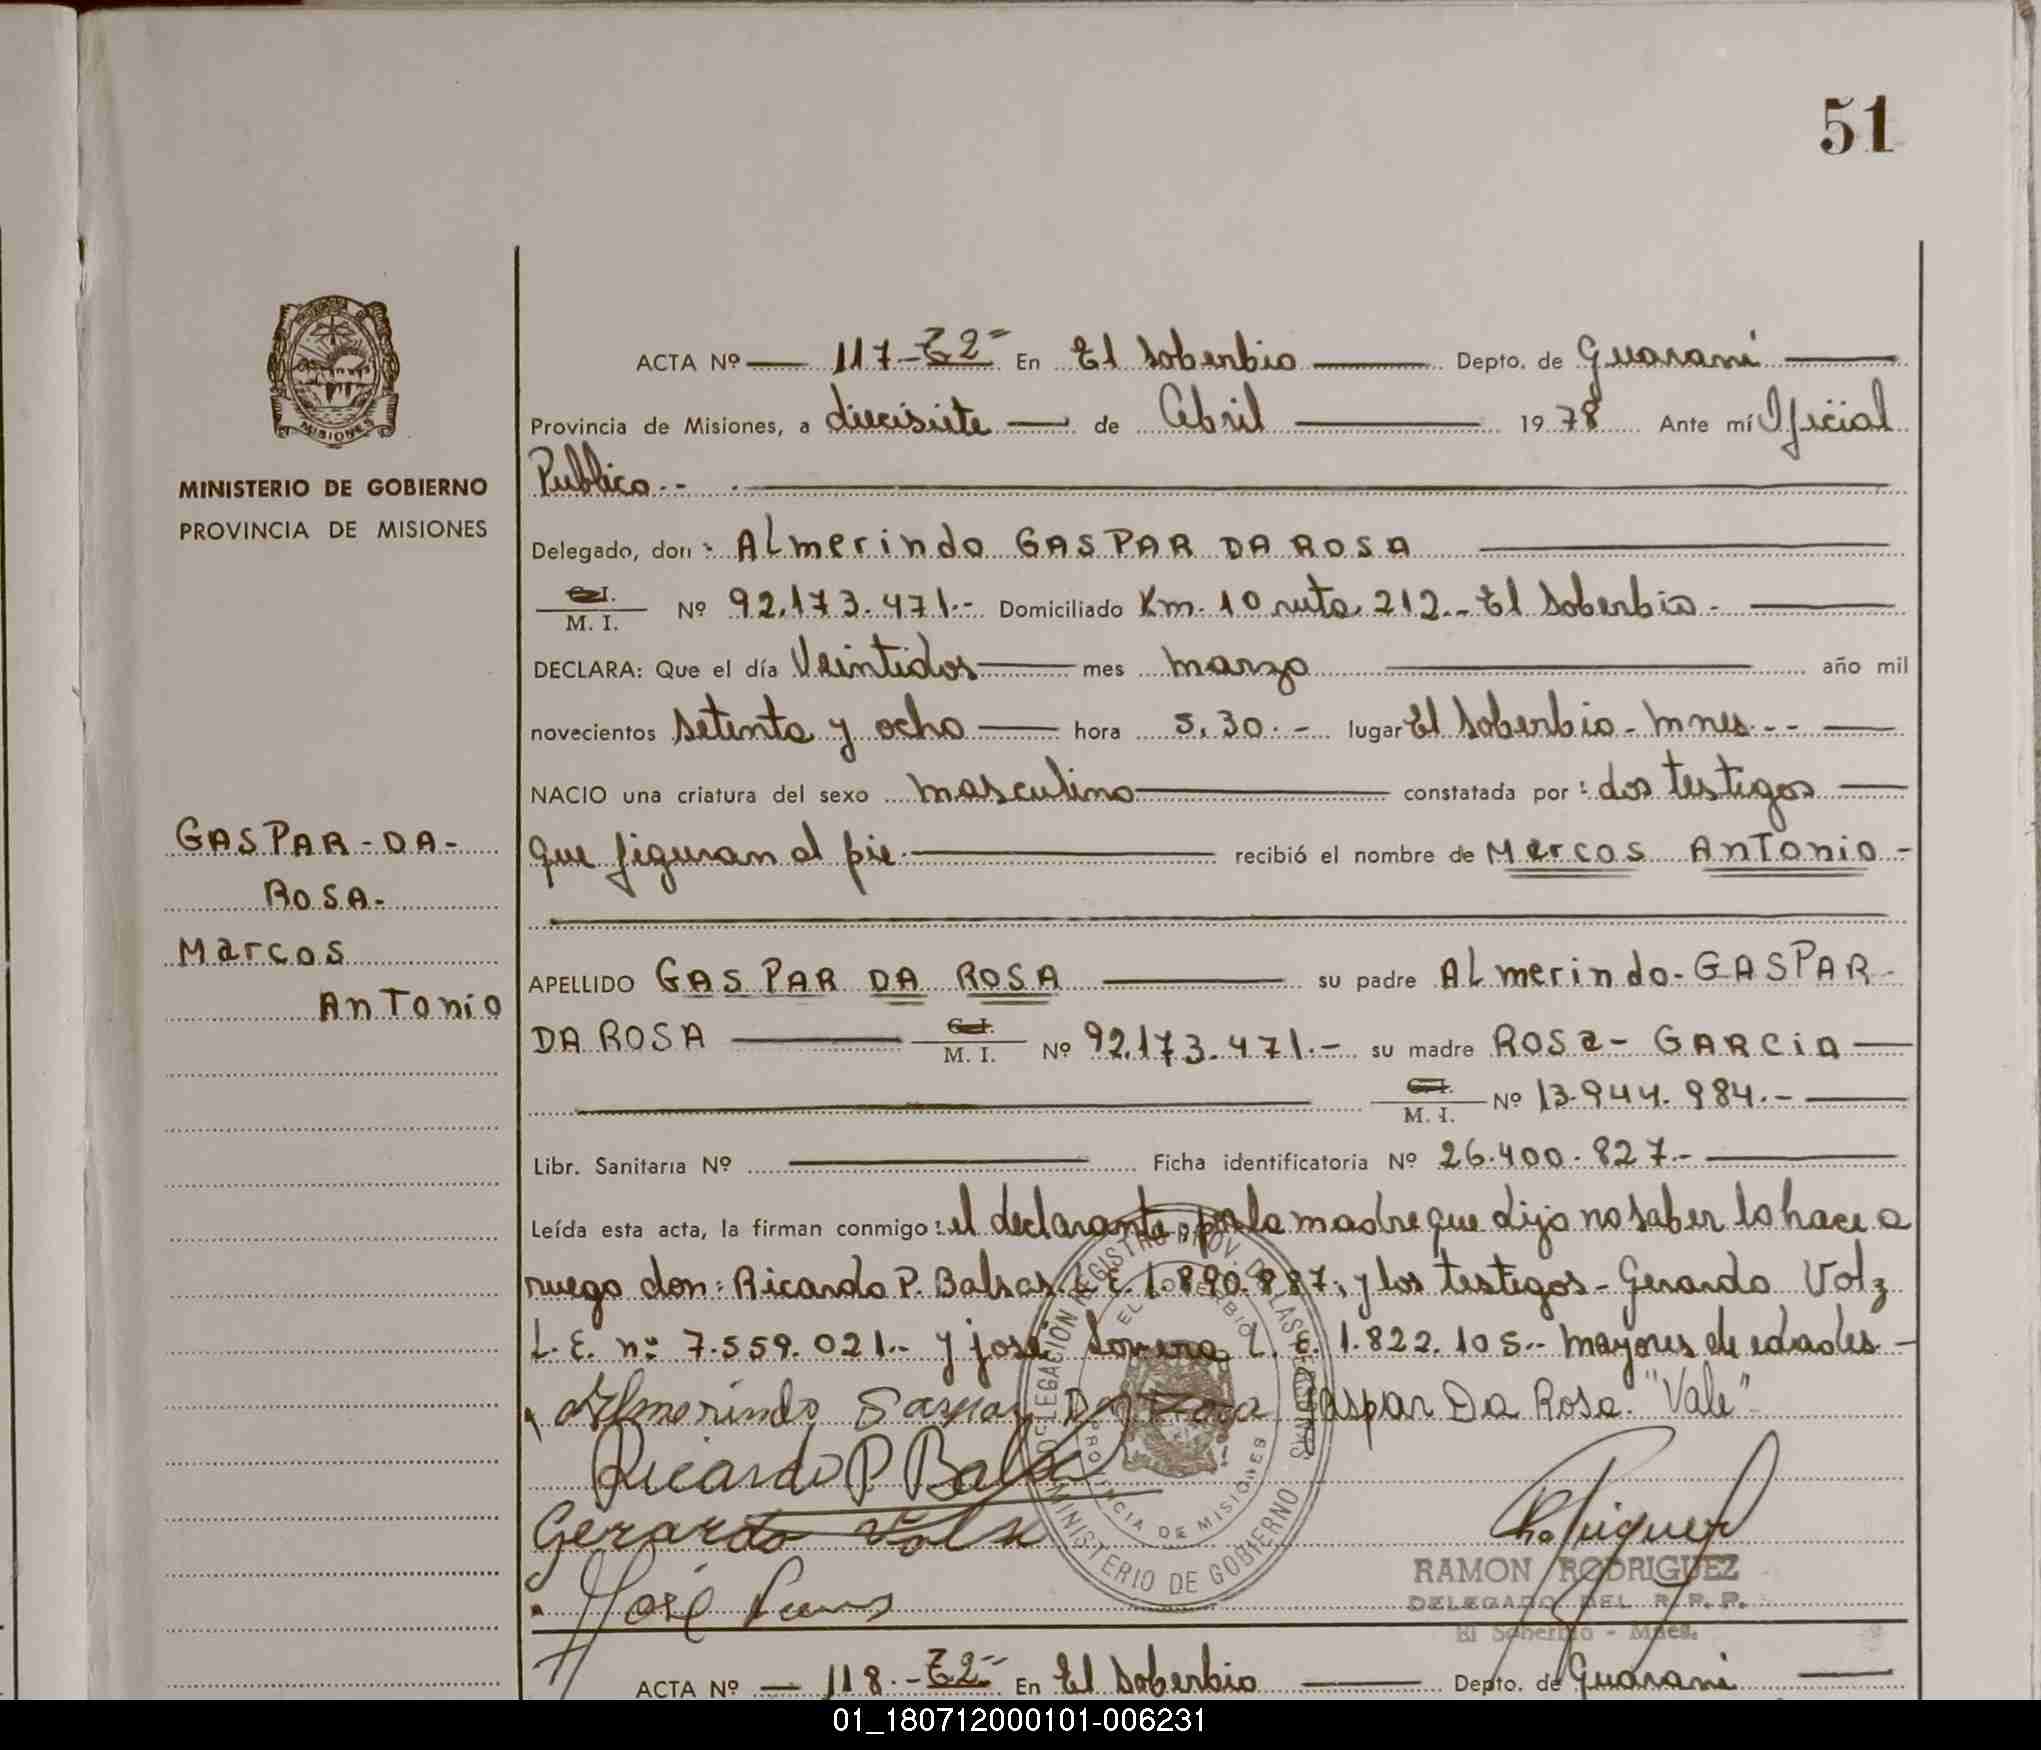 51
MISIONES
MINISTERIO DE GOBIERNO
PROVINCIA DE MISIONES
GASPAR-DA-
ROSA-
Marcos
Antonio
ACTA Nº 117.- T 2º En El Soberbio Depto. de Guarani
Provincia de Misiones, a diecisiete de Abril 1978 Ante mí Oficial
Publico.-
Delegado, don: Almerindo GASPAR DA ROSA
C.I.
M. I. Nº 92.173.471.- Domiciliado Km. 10 ruta 212.- El Soberbio-
DECLARA: Que el día Veintidos mes marzo año mil
novecientos setenta y ocho hora 5,30.- lugar El Soberbio- Mnes.--
NACIO una criatura del sexo masculino constatada por: dos testigos
que figuran al pie. recibió el nombre de Marcos Antonio-
APELLIDO GASPAR DA ROSA su padre Almerindo-GASPAR-
DA ROSA C.I.
M. I. Nº 92.173.471.- su madre ROSA- GARCIA
C.I.
M. I. Nº 13.944.984.-
Libr. Sanitaria Nº Ficha identificatoria Nº 26.400.827.-
Leída esta acta, la firman conmigo: el declarante, por la madre que dijo no saber lo hace a
ruego don: Ricardo P. Balsas L.E. 1.890.887, y los testigos- Gerardo Volz
L.E. nº 7.559.021.- y José L.E. 1.822.105.- mayores de edades-
Almerindo Gaspar Da Rosa Gaspar Da Rosa. "Vale"
Ricardo P Bals
Gerardo Volz
José
DELEGACIÓN REGISTRO PROV. DE LAS PERSONAS
EL SOBERBIO
PROVINCIA DE MISIONES
MINISTERIO DE GOBIERNO
RAMON RODRIGUEZ
DELEGADO DEL R. P. P.
El Soberbio - Mnes.
ACTA Nº 118.- T 2º En El Soberbio Depto. de Guarani
01_180712000101-006231